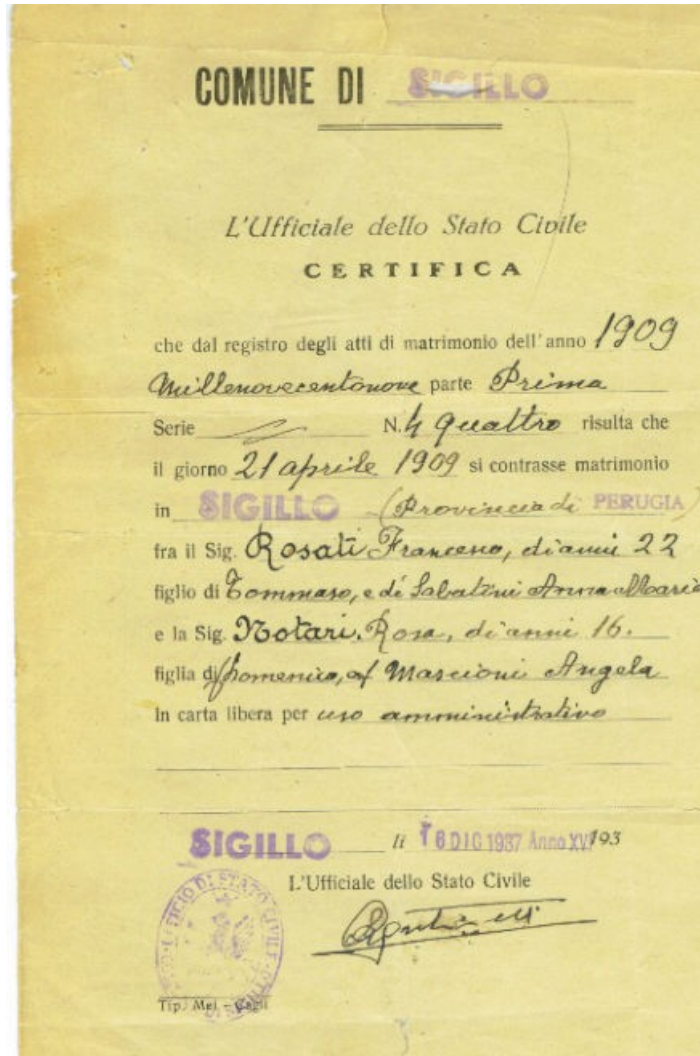 COMUNE DI SIGILLO
L'Ufficiale dello Stato Civile
CERTIFICA
che dal registro degli atti di matrimonio dell'anno 1909
Millenovecentonove parte Prima
Serie N. 4 quattro risulta che
il giorno 21 aprile 1909 si contrasse matrimonio
in SIGILLO (Provincia di PERUGIA)
fra il Sig. Rosati Francesco, di anni 22
figlio di Tommaso, e di Sabatini Anna Maria
e la Sig. Notari Rosa, di anni 16.
figlia di Domenico, e Mascioni Angela
In carta libera per uso amministrativo
SIGILLO li 16 DIC 1937 Anno XVI 193
L'Ufficiale dello Stato Civile
UFFICIO DI STATO CIVILE
Tip. Mei - Cagli